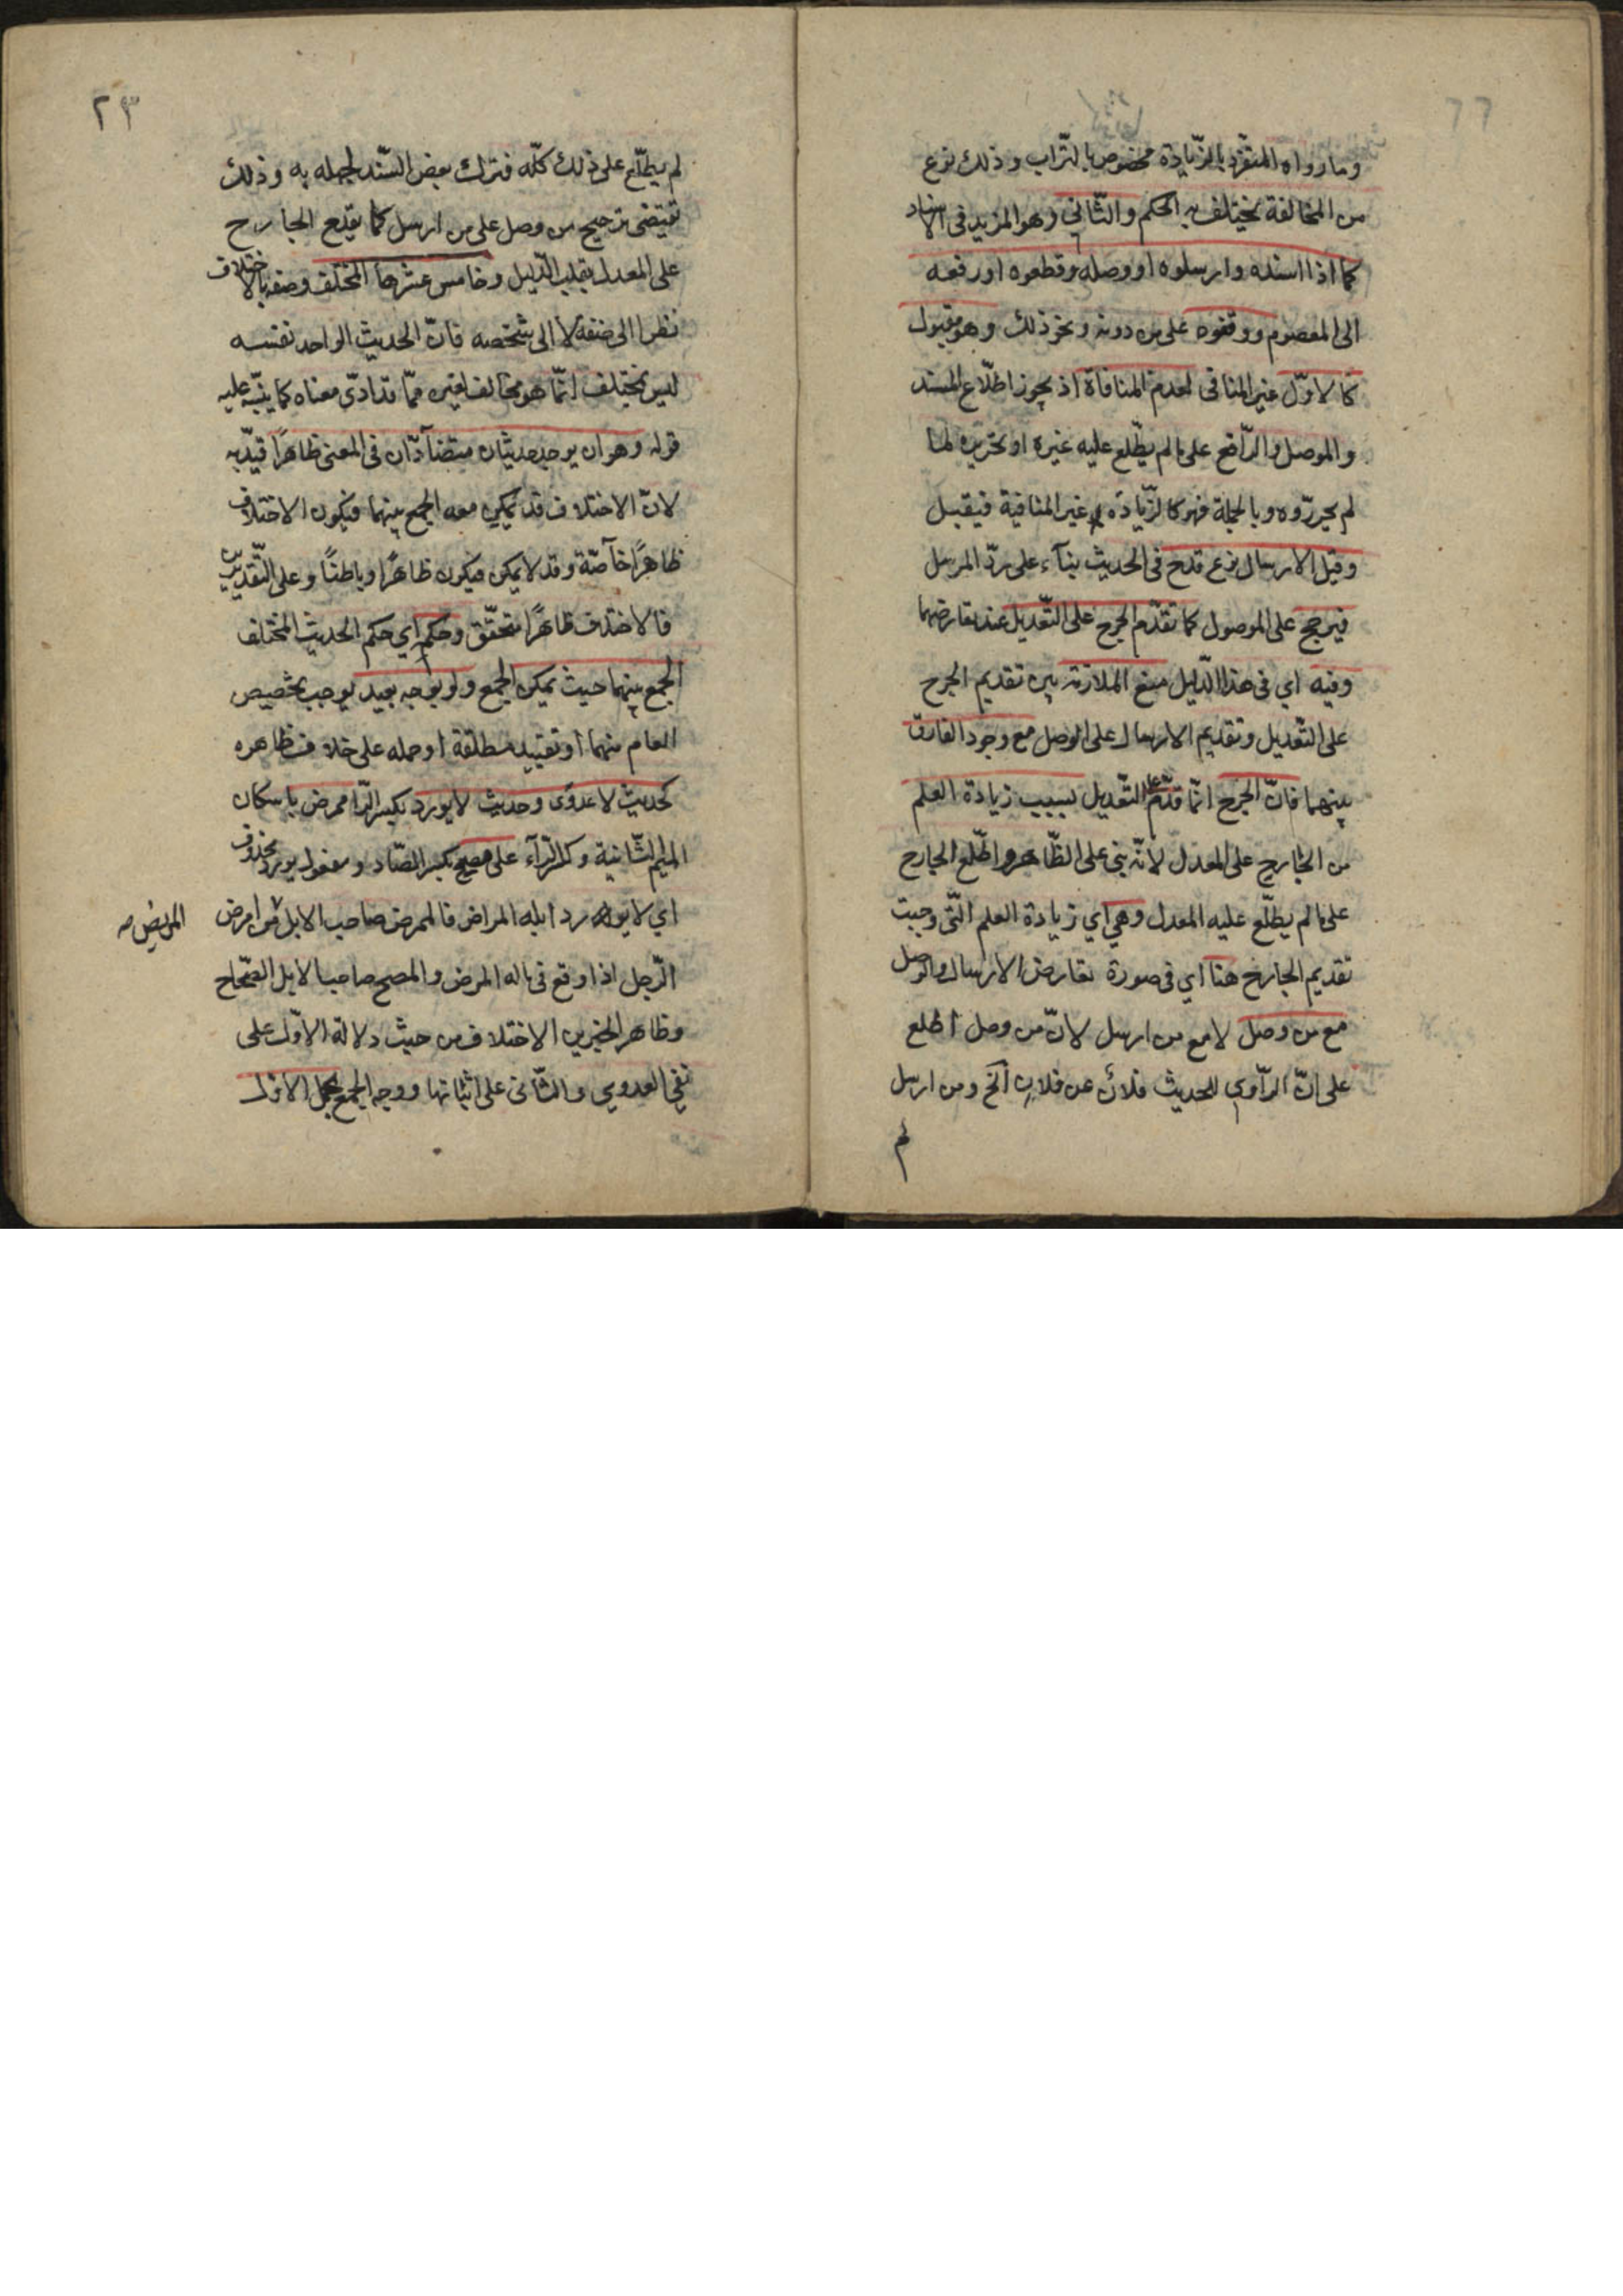 وما رواه المتفرد بالزّيادة مخصوص بالتّراب وذلك نوع
من المخالفة يختلف به الحكم والثّاني وهو المزيد في الاسناد
كما اذا اسنده وارسلوه او وصله وقطعوه او رفعه
الى المعصوم ووقفوه على من دونه ونحو ذلك وهو مقبول
كالاوّل غير المنافى لعدم المنافاة اذ يجوز اطّلاع المسند
والموصل والرّافع على ما لم يطّلع عليه غيره او تحريره لما
لم يحرّروه وبالجملة فهو كالزّيادة غير المنافية فيقبل
وقيل الارسال نوع قدح في الحديث بنآء على ردّ المرسل
فيرجح على الموصول كما تقدّم الجرح على التّعديل عند تعارضهما
وفيه اي في هذا الدّليل منع الملازمة بين تقديم الجرح
على التّعديل وتقديم الارسال على الوصل مع وجود الفارق
بينهما فانّ الجرح انّما قدّم على التّعديل بسبب زيادة العلم
من الجارح على المعدل لانّه بنى على الظّاهر واطّلع الجارح
على ما لم يطّلع عليه المعدل وهي اي زيادة العلم الّتى وجبت
تقديم الجارح هنا اي في صورة تعارض الارسال والوصل
مع من وصل لا مع من ارسل لانّ من وصل اطلع
على انّ الرّاوي للحديث فلان عن فلان الخ ومن ارسل
لم
٢٣
لم يطّلع على ذلك كلّه فترك بعض السّند لجهله به وذلك
تقيتضى ترجيح من وصل على من ارسل كما يقدم الجارح
على المعدل بقلب الدّليل وخامس عشرها المختلف وصفه بالاختلاف
نظرا الى صنفه لا الى شخصه فانّ الحديث الواحد نفسه
ليس بمختلف انّما هو مخالف لغيره ممّا قد ادّى معناه كما ينبّه عليه
قوله وهو ان يوجد حديثان متضآدّان في المعنى ظاهرًا قيّد به
لانّ الاختلاف قد يمكن معه الجمع بينهما فيكون الاختلاف
ظاهرًا خآصّة وقد لا يمكن فيكون ظاهرًا وباطنًا وعلى التّقديرين
فالاختلاف ظاهرًا متحقّق وحكمه اي حكم الحديث المختلف
الجمع بينهما حيث يمكن الجمع ولو بوجه بعيد يوجب تخصيص
العام منهما او تقييد مطلقة او حمله على خلاف ظاهره
كحديث لا عدوى وحديث لا يورد بكسر الرّا ممرض باسكان
الميم الثّانية وكسر الرّآء على مصح بكسر الصّاد ومفعول يورد محذوف
اي لا يورد ابله المراض فالممرض صاحب الابل من امرض
المريض صه
الرّجل اذا وقع في ماله المرض والمصح صاحب الابل الصّحاح
وظاهر الخبرين الاختلاف من حيث دلالة الاوّل على
نفي العدوي والثّانى على اثباتها ووجه الجمع بحمل الاوّل